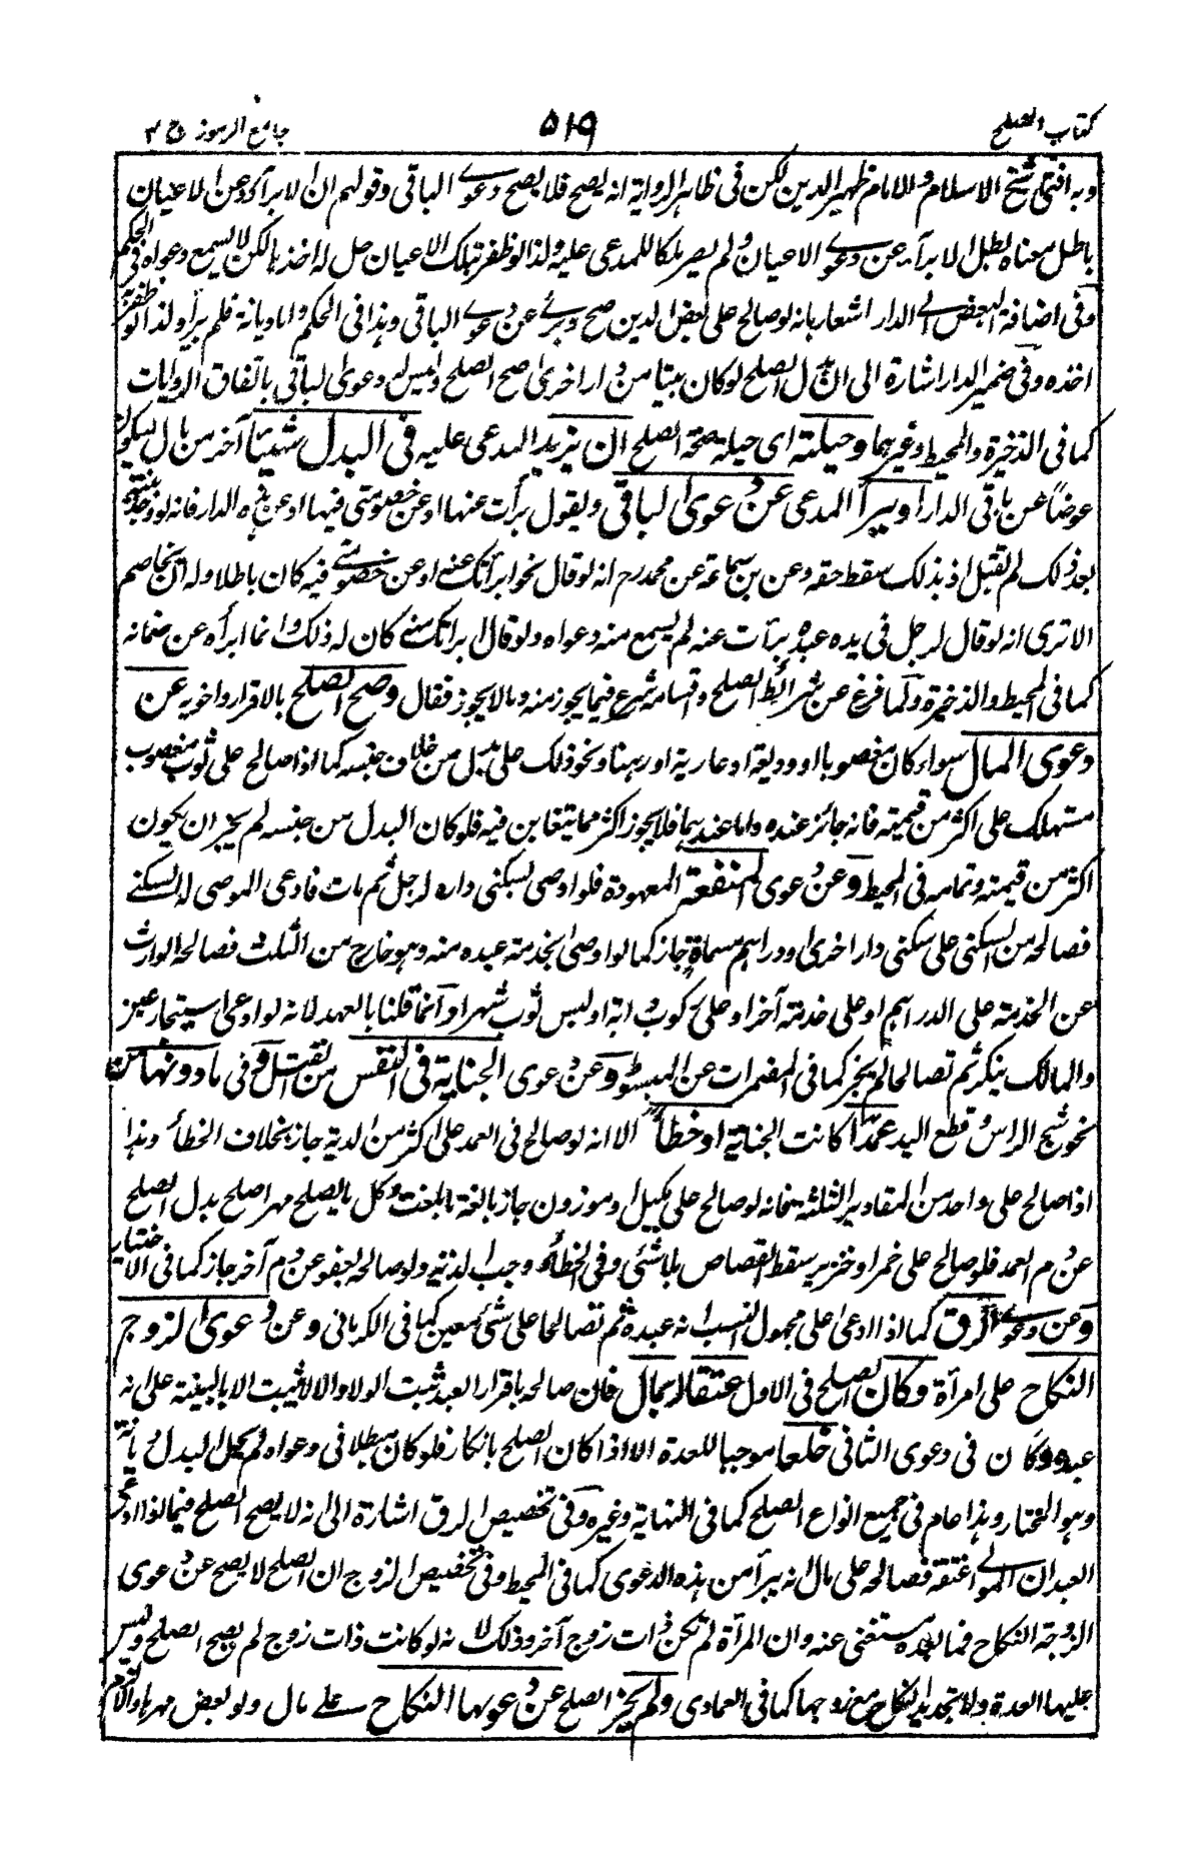 كتاب الصلح ٥١٩ جامع الرموز ج ٣
وبه افتى شيخ الاسلام والامام ظهير الدين لكن فى ظاهر الرواية انه يصح فلا يصح دعوے الباقى وقولهم ان الابراء عن الاعيان
باطل معناه بطل الابراء عن دعوے الاعيان ولم يصر ملكا للمدعى عليه ولذا لو ظفر بتلك الاعيان حل له اخذها لكن لا يسمع دعواه فى الحكم
وفى اضافة البعض الے الدار اشعار بانه لو صالح على بعض الدين صح وبرئ عن دعوے الباقى وهذا فى الحكم واما ديانة فلم يبرأ ولذا لو ظفر به
اخذه وفى ضمير الدار اشارة الى ان بدل الصلح لو كان بيتا من دار اخرى صح الصلح وليس له دعوى الباقى باتفاق الروايات
كما فى الذخيرة والمحيط وغيرهما وحيلته اى حيلة صحة الصلح ان يزيد المدعى عليه فى البدل شيئا آخر من مال ليكون
عوضا عن باقى الدار او يبرأ المدعى عن دعوى الباقى ويقول برأت عنها او عن خصومتى فيها او عن هذه الدار فانه لو وجد بينته
بعد ذلك لم تقبل اذ بذلك سقط حقه وعن بن سماعة عن محمد رح انه لو قال نحو ابرأتك عنه او عن خصومتى فيه كان باطلا وله ان يخاصم
الا ترى انه لو قال لرجل فى يده عبده برأت عنه لم يسمع منه دعواه ولو قال ابرأتك منه كان له ذلك وانما ابرأه عن ضمانه
كما فى المحيط والذخيرة ولما فرغ عن شرائط الصلح واقسامه شرع فيما يجوز منه وما لا يجوز فقال وصح الصلح بالاقرار واخويه عن
دعوى المال سواء كان مغصوبا او وديعة او عارية او رهنا ونحو ذلك على بدل من خلاف جنسه كما اذا صالح على ثوب مغصوب
مستهلك على اكثر من قيمته فانه جائز عنده واما عندهما فلا يجوز اكثر مما يتغابن فيه فلو كان البدل من جنسه لم يجز ان يكون
اكثر من قيمته وتمامه فى المحيط وعن دعوى المنفعة المعهودة فلو اوصى بسكنى داره لرجل ثم مات فادعى الموصى له السكنے
فصالحه من السكنى على سكنى دار اخرى او دراهم مسماة جاز كما لو اوصى بخدمة عبده منه وهو خارج من الثلث فصالحه الوارث
عن الخدمة على الدراهم او على خدمة آخر او على ركوب دابة او لبس ثوب شهرا وانما قلنا بالعهد لانه لو ادعى استيجار عين
والمالك ينكر ثم تصالحا لم يجز كما فى المضمرات عن المبسوط وعن دعوى الجناية فى النفس من القتل وفى ما دونها من
نحو شج الراس وقطع اليد عمدا كانت الجناية او خطأ الا انه لو صالح فى العمد على اكثر من الدية جاز بخلاف الخطأ وهذا
اذا صالح على واحد من المقادير الثلثة فانه لو صالح على مكيل او موزون جاز بالغة ما بلغت وكل ما يصلح مهرا صلح بدل الصلح
عن دم العمد فلو صالح على خمر او خنزير سقط القصاص بلا شئى وفى الخطأ وجب الدية ولو صالحه بعفو عن دم آخر جاز كما فى الاختيار
وعن دعوے الرق كما اذا ادعى على مجهول النسب انه عبده ثم تصالحا على شئى معين كما فى الكرمانى وعن دعوى الزوج
النكاح على امرأة وكان الصلح فى الاول عتقا بمال فان صالحه باقرار العبد ثبت الولاء والا لا يثبت الا بالبينة على انه
عبده وكان فى دعوى الثانى خلعا موجبا للعدة الا اذا كان الصلح بانكار فلو كان مبطلا فى دعواه لم يحل البدل ديانة
وهو المختار وهذا عام فى جميع انواع الصلح كما فى النهاية وغيره وفى تخصيص الرق اشارة الى انه لا يصح الصلح فيما لو ادعى
العبد ان المولے اعتقه فصالحه على مال انه يبرأ من هذه الدعوى كما فى المحيط وفى تخصيص الزوج ان الصلح لا يصح عن دعوى
الزوجة النكاح فما بعده مستغنى عنه وان المرأة لم تكن ذات زوج آخر وذلك لانه لو كانت ذات زوج لم يصح الصلح وليس
عليها العدة ولا تجديد النكاح مع زوجها كما فى العمادى ولم يجز الصلح عن دعويها النكاح علے مال ولو بعض مهرها